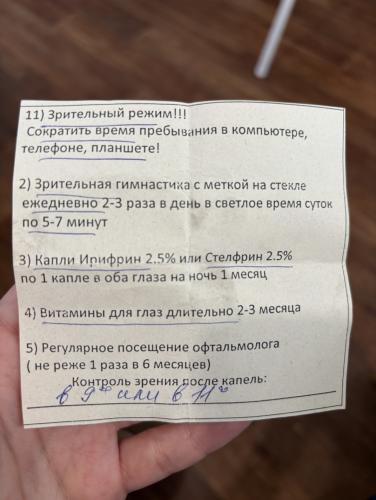 11) Зрительный режим!!!
Сократить время пребывания в компьютере,
телефоне, планшете!
2) Зрительная гимнастика с меткой на стекле
ежедневно 2-3 раза в день в светлое время суток
по 5-7 минут
3) Капли Ирифрин 2.5% или Стелфрин 2.5%
по 1 капле в оба глаза на ночь 1 месяц
4) Витамины для глаз длительно 2-3 месяца
5) Регулярное посещение офтальмолога
( не реже 1 раза в 6 месяцев)
Контроль зрения после капель:
в 9⁰⁰ или в 11⁰⁰